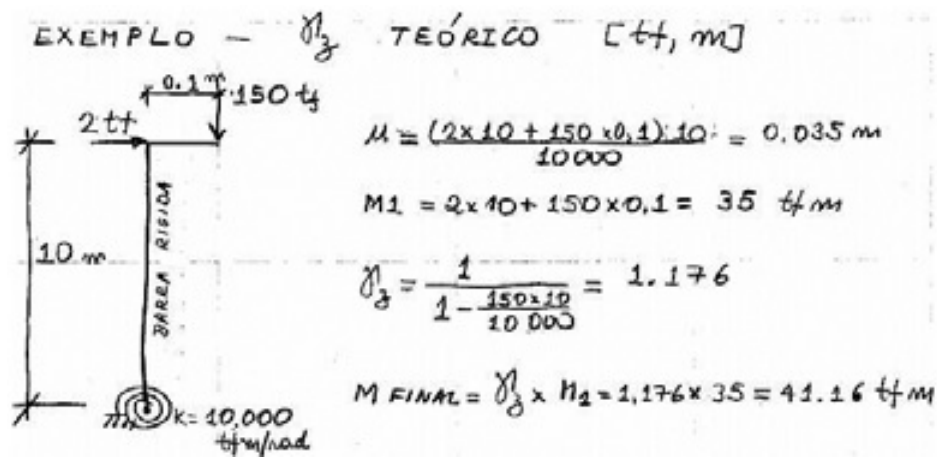 EXEMPLO - γz TEÓRICO [tf, m]
0.1 m
150 tf
2 tf
10 m
BARRA RIGIDA
K = 10,000
tfm/rad
μ = (2×10 + 150×0,1).10 / 10000 = 0.035 m
M1 = 2×10 + 150×0,1 = 35 tfm
γz = 1 / (1 - 150×10 / 10000) = 1.176
M FINAL = γz × M1 = 1,176 × 35 = 41.16 tfm